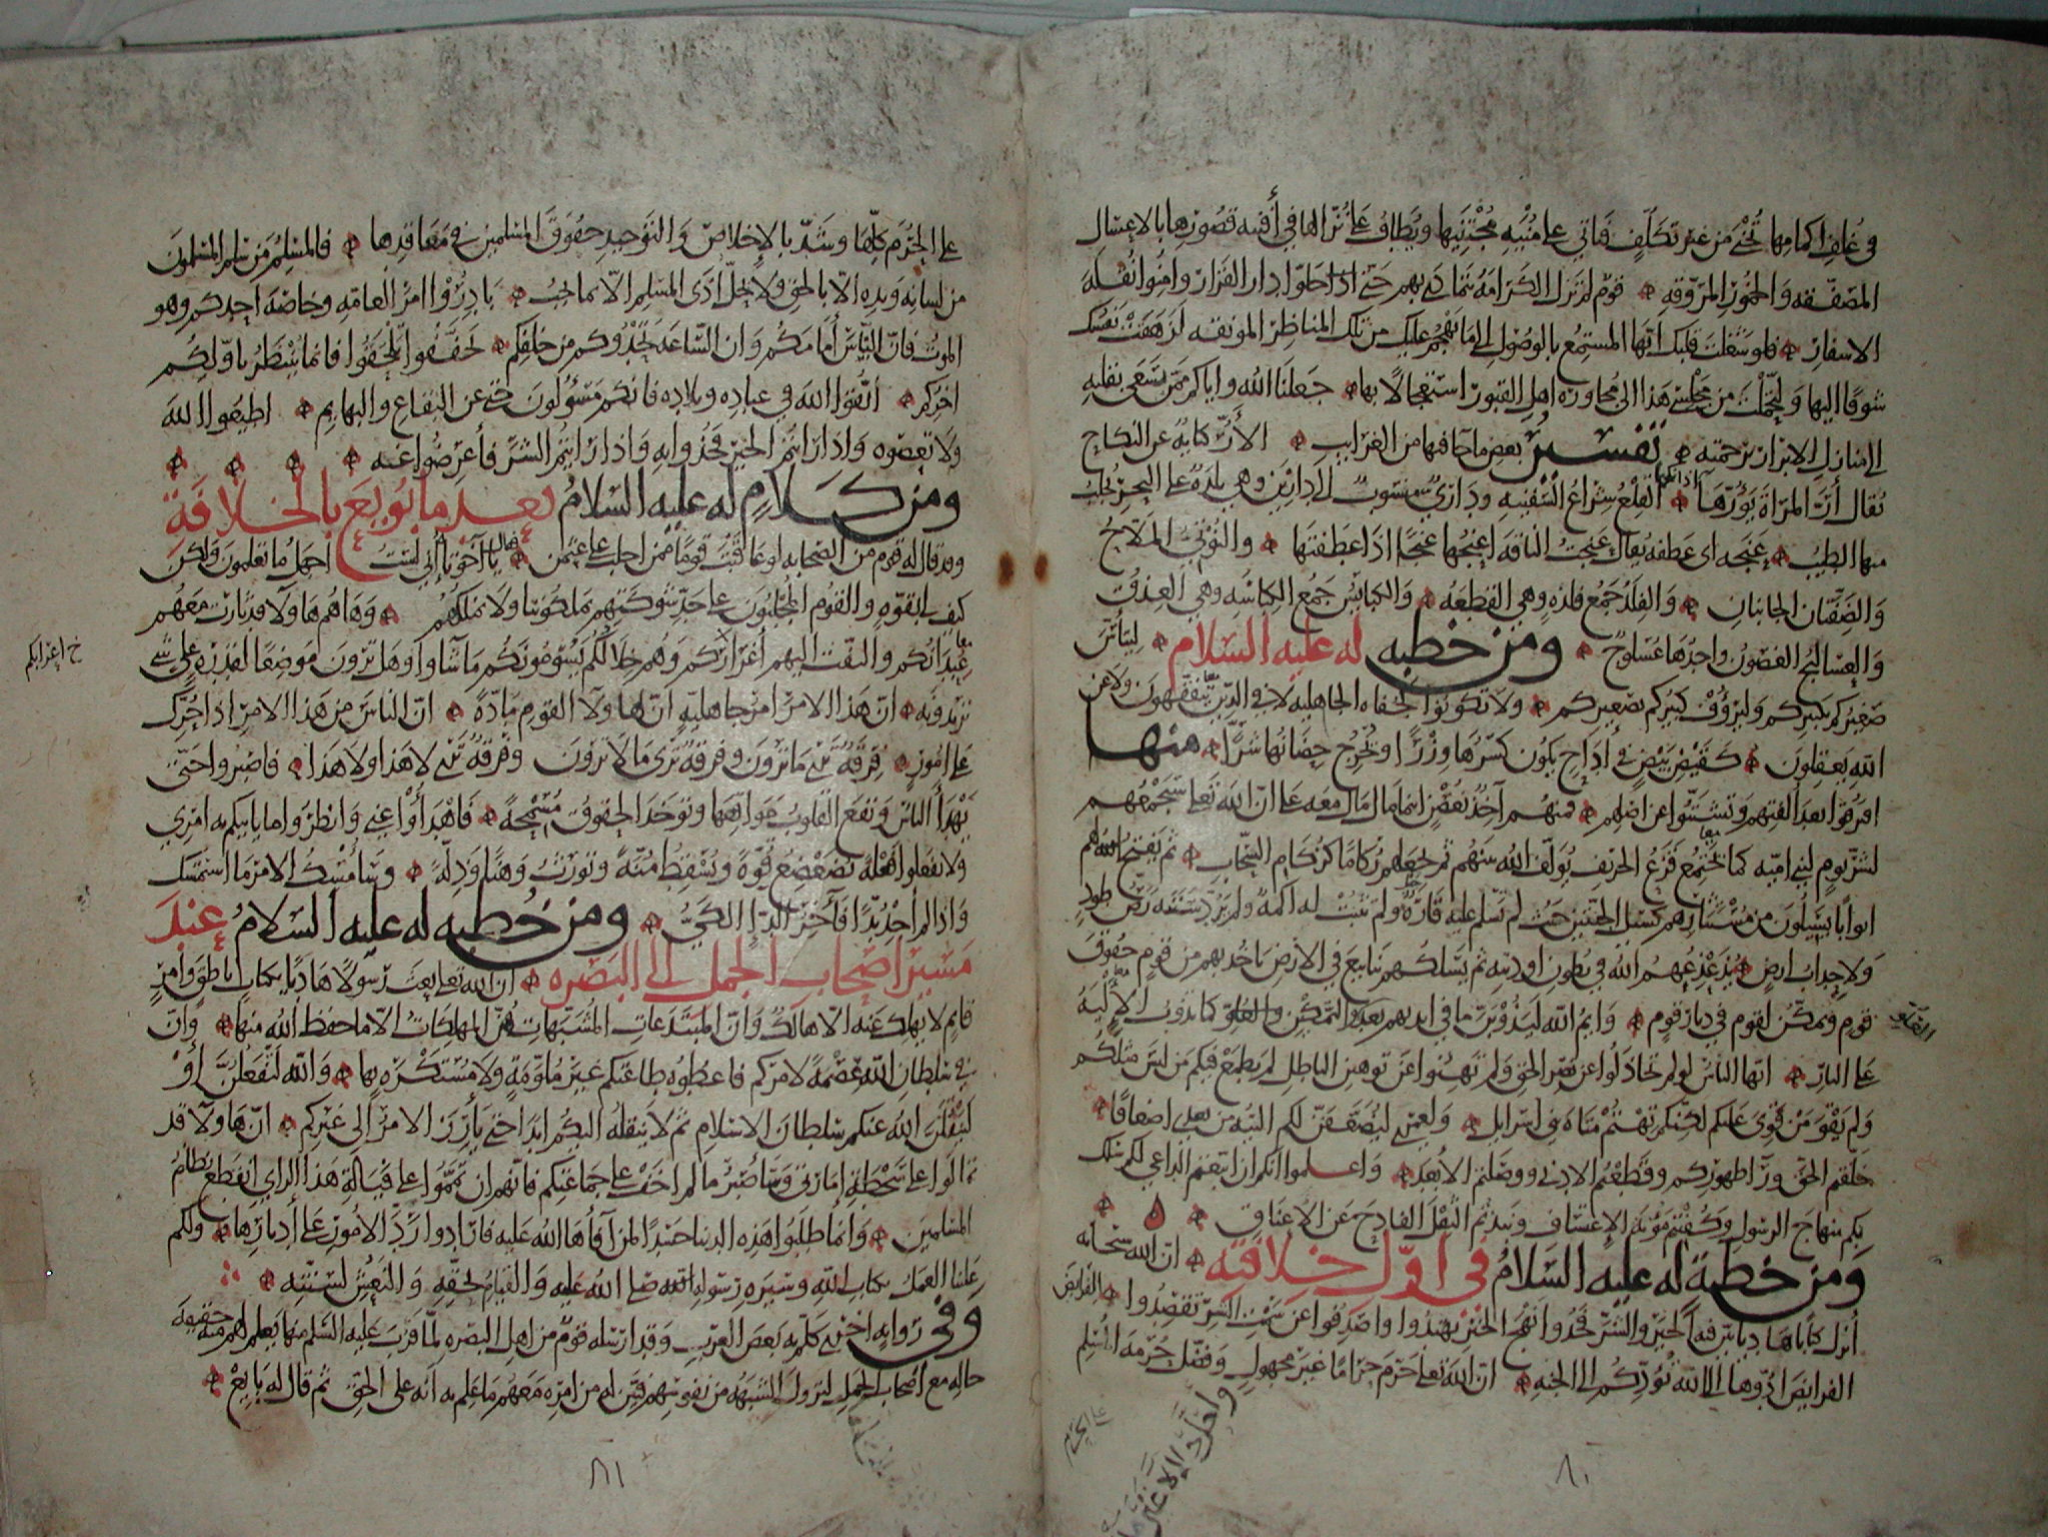 في غلف اكمامها تجنى من غير تكلف فتاتي على منية مجتنيها ويطاف على نزالها في أفنية قصورها بالاعسال
المصفقه والخمور المروقه قوم لم تزل الكرامة تتمادى بهم حتى اذا حلوا دار القرار وامنوا نقلة
الاسفار فلو شغلت قلبك ايها المستمع بالوصول الى ما يهجم عليك من تلك المناظر المونقه لزهقت نفسك
شوقا اليها ولتحملت من مجلسي هذا الى مجاورة اهل القبور استعجالا بها جعلنا الله واياكم ممن يسعى بقلبه
الى منازل الابرار برحمته تفسير بعض ما جا فيها من الغرايب الأر كناية عن النكاح
يقال أر المراة يؤرها اذا نكحها القلع شراع السفينه وداري منسوب الى دارين وهي بلدة على البحر يجلب
منها الطيب عنجه اى عطفه يقال عنجت الناقة اعنجها عنجا اذا عطفتها والنوتي الملاح
والضفتان الجانبان والفلذ جمع فلذه وهي القطعه والكبايس جمع الكباسه وهي العذق
والعساليج الغصون واحدها عسلوج ومن خطبه له عليه السلام ليتأس
صغيركم بكبيركم وليرؤف كبيركم بصغيركم ولا تكونوا كجفاه الجاهليه لا في الدين يتفقهون ولا عن
الله يعقلون كقيض بيض في أداح يكون كسرها وزرا ويخرج حضانها شرا منها
افترقوا بعد الفتهم وتشتتوا عن اصلهم فمنهم آخذ بغصن اينما مال مال معه على ان الله تعالى سيجمعهم
لشر يوم لبني اميه كما تجتمع قزع الخريف يولف الله بينهم ثم يجعلهم ركاما كركام السحاب ثم يفتح الله لهم
ابوابا يسيلون من مستثارهم كسيل الجنتين حيث لم تسلم عليه قارة ولم تثبت له اكمة ولم يرد سننه رص طود
ولا حداب ارض يذعذعهم الله في بطون اوديته ثم يسلكهم ينابيع في الارض ياخذ بهم من قوم حقوق
قوم ويمكن لقوم في ديار قوم وايم الله ليذوبن ما في ايديهم بعد العلو والتمكين كما تذوب الالية
على النار ايها الناس لو لم تتخاذلوا عن نصر الحق ولم تهنوا عن توهين الباطل لم يطمع فيكم من ليس مثلكم
ولم يقو من قوي عليكم لكنكم تهتم متاه بني اسرايل ولعمري ليضعفن لكم التيه من بعدي اضعافا
خلفتم الحق ورآ ظهوركم وقطعتم الادنى ووصلتم الأبعد واعلموا انكم ان اتبعتم الداعي لكم سلك
بكم منهاج الرسول وكفيتم مؤنة الاعتساف ونبذتم الثقل الفادح عن الأعناق
ومن خطبة له عليه السلام في اول خلافته ان الله سبحانه
أنزل كتابا هاديا بين فيه الخير والشر فخذوا نهج الخير تهتدوا واصدفوا عن سمت الشر تقصدوا الفرايض
الفرايض ادوها الى الله تؤدكم الى الجنه ان الله تعالى حرم حراما غير مجهول وفضل حرمة المسلم
٨٠
على الحرم كلها وشد بالإخلاص والتوحيد حقوق المسلمين في معاقدها فالمسلم من سلم المسلمون
من لسانه ويده الا بالحق ولا يحل اذى المسلم الا بما يجب بادروا امر العامه وخاصة احدكم وهو
الموت فان الناس أمامكم وان الساعة تحدوكم من خلفكم تخففوا تلحقوا فانما ينتظر باولكم
اخركم اتقوا الله في عباده وبلاده فانكم مسؤلون حتى عن البقاع والبهايم اطيعوا الله
ولا تعصوه واذا رايتم الخير فخذوا به واذا رايتم الشر فأعرضوا عنه
ومن كلام له عليه السلام بعد ما بويع بالخلافة
وقد قال له قوم من الصحابه لو عاقبت قوما ممن اجلب على عثمن فقال يا اخوتاه إني لست اجهل ما تعلمون ولكن
كيف لي بقوه والقوم المجلبون على حد شوكتهم يملكوننا ولا نملكهم وهاهم هاولا قد ثارت معهم
عبدانكم والتفت اليهم أعرابكم وهم خلالكم يسومونكم ما شاوا وهل ترون موضعا لقدرة على شي
تريدونه ان هذا الامر امر جاهلية ان لهاولآ القوم مادة ان الناس من هذا الامر اذا حرك
على امور فرقة ترى ما ترون وفرقة ترى ما لا ترون وفرقة ترى لا هذا ولا هذا فاصبروا حتى
يهدأ الناس وتقع القلوب مواقعها وتوخذ الحقوق مسمحة فاهدأوا عني وانظروا ما ياتيكم به امري
ولا تفعلوا فعلة تضعضع قوة وتسقط منة وتورث وهنا وذلة وسأمسك الامر ما استمسك
واذا لم اجد بدا فآخر الدآ الكي ومن خطبه له عليه السلام عند
مسير اصحاب الجمل الى البصره ان الله تعالى بعث رسولا هاديا بكتاب ناطق وأمر
قايم لا يهلك عنه الا هالك وان المبتدعات المشبهات هن المهلكات الا ما حفظ الله منها وان
في سلطان الله عصمة لامركم فاعطوه طاعتكم غير ملومة ولا مستكره بها والله لتفعلن أو
لينقلن الله عنكم سلطان الاسلام ثم لا ينقله اليكم ابدا حتى يأرز الامر الى غيركم ان هاولآ قد
تمالوا على سخطة امارتي وسأصبر ما لم اخف على جماعتكم فانهم ان تمموا على فيالة هذا الراي انقطع نظام
المسلمين وانما طلبوا هذه الدنيا حسدا لمن أفاها الله عليه فارادوا رد الامور على أدبارها ولكم
علينا العمل بكتاب الله وسيره رسول الله صلى الله عليه والقيام بحقه والنعش لسنته
وفي روايه اخرى كلم به بعض العرب وقد ارسله قوم من اهل البصره لما قرب عليه السلم منها يعلم لهم منه حقيقة
حاله مع اصحاب الجمل لتزول الشبهه من نفوسهم فبين له من امره معهم ما علم به انه على الحق ثم قال له بايع
٨١
خ اعرابكم